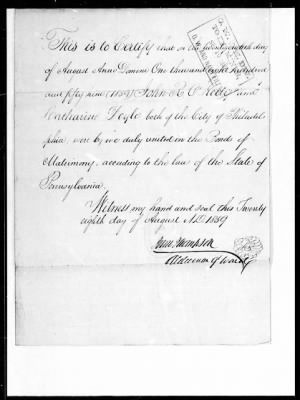 This is to Certify that on the twenty eighth day
of August Anno Domini One thousand eight hundred
and fifty nine (1859) John and
Katharine both of the City of Philadel
phia, were by me duly united in the Bonds of
Matrimony, according to the law of the State of
Pennsylvania.
Witness my hand and seal this Twenty
eighth day of August A.D. 1859
Thompson
Alderman